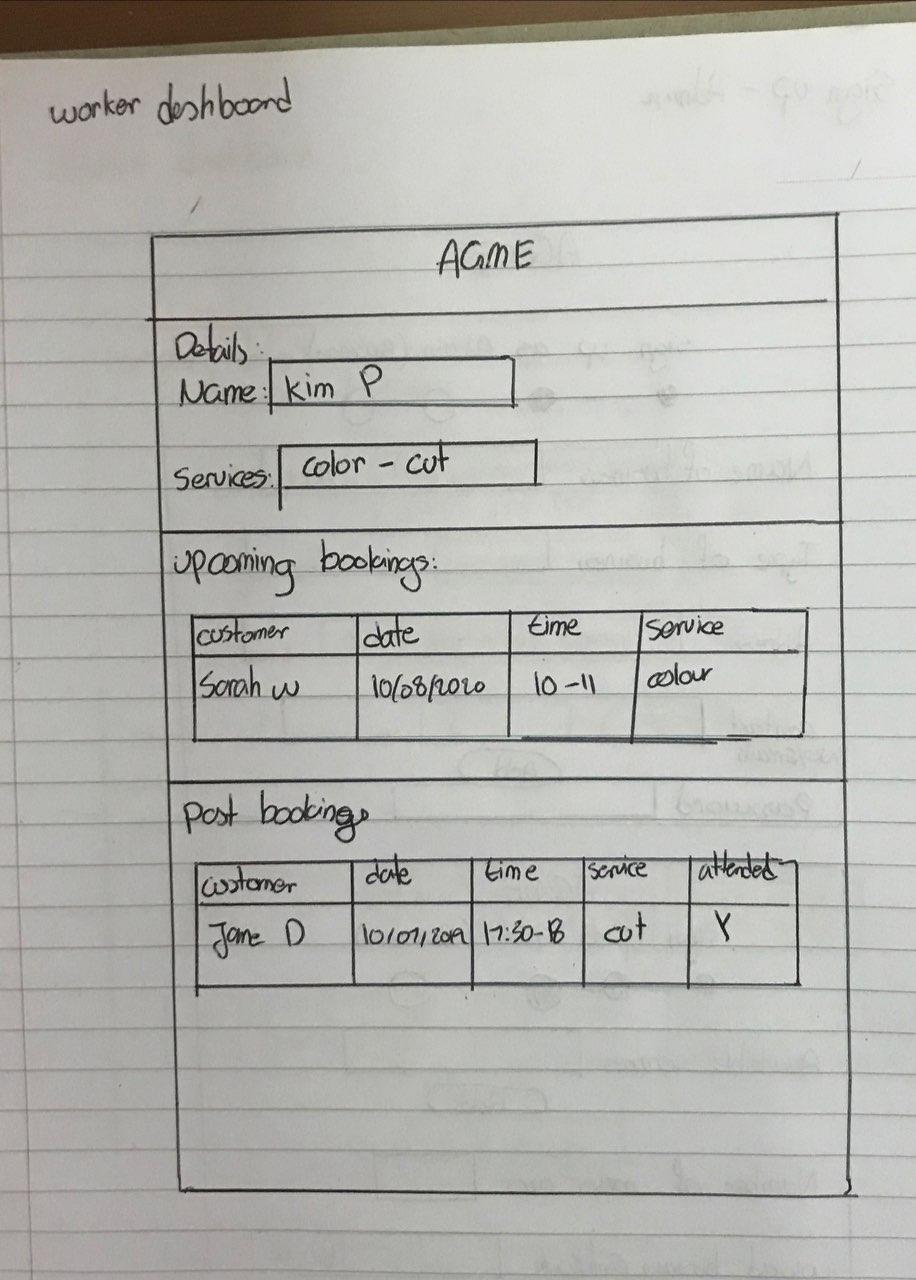 worker dashboard
AGME
Details:
Name: Kim P
Services: color - cut
upcoming bookings:
customer date time service
Sarah W 10/08/2020 10-11 colour
Past bookings
customer date time service attended
Jane D 10/07/2019 17:30-18 cut Y